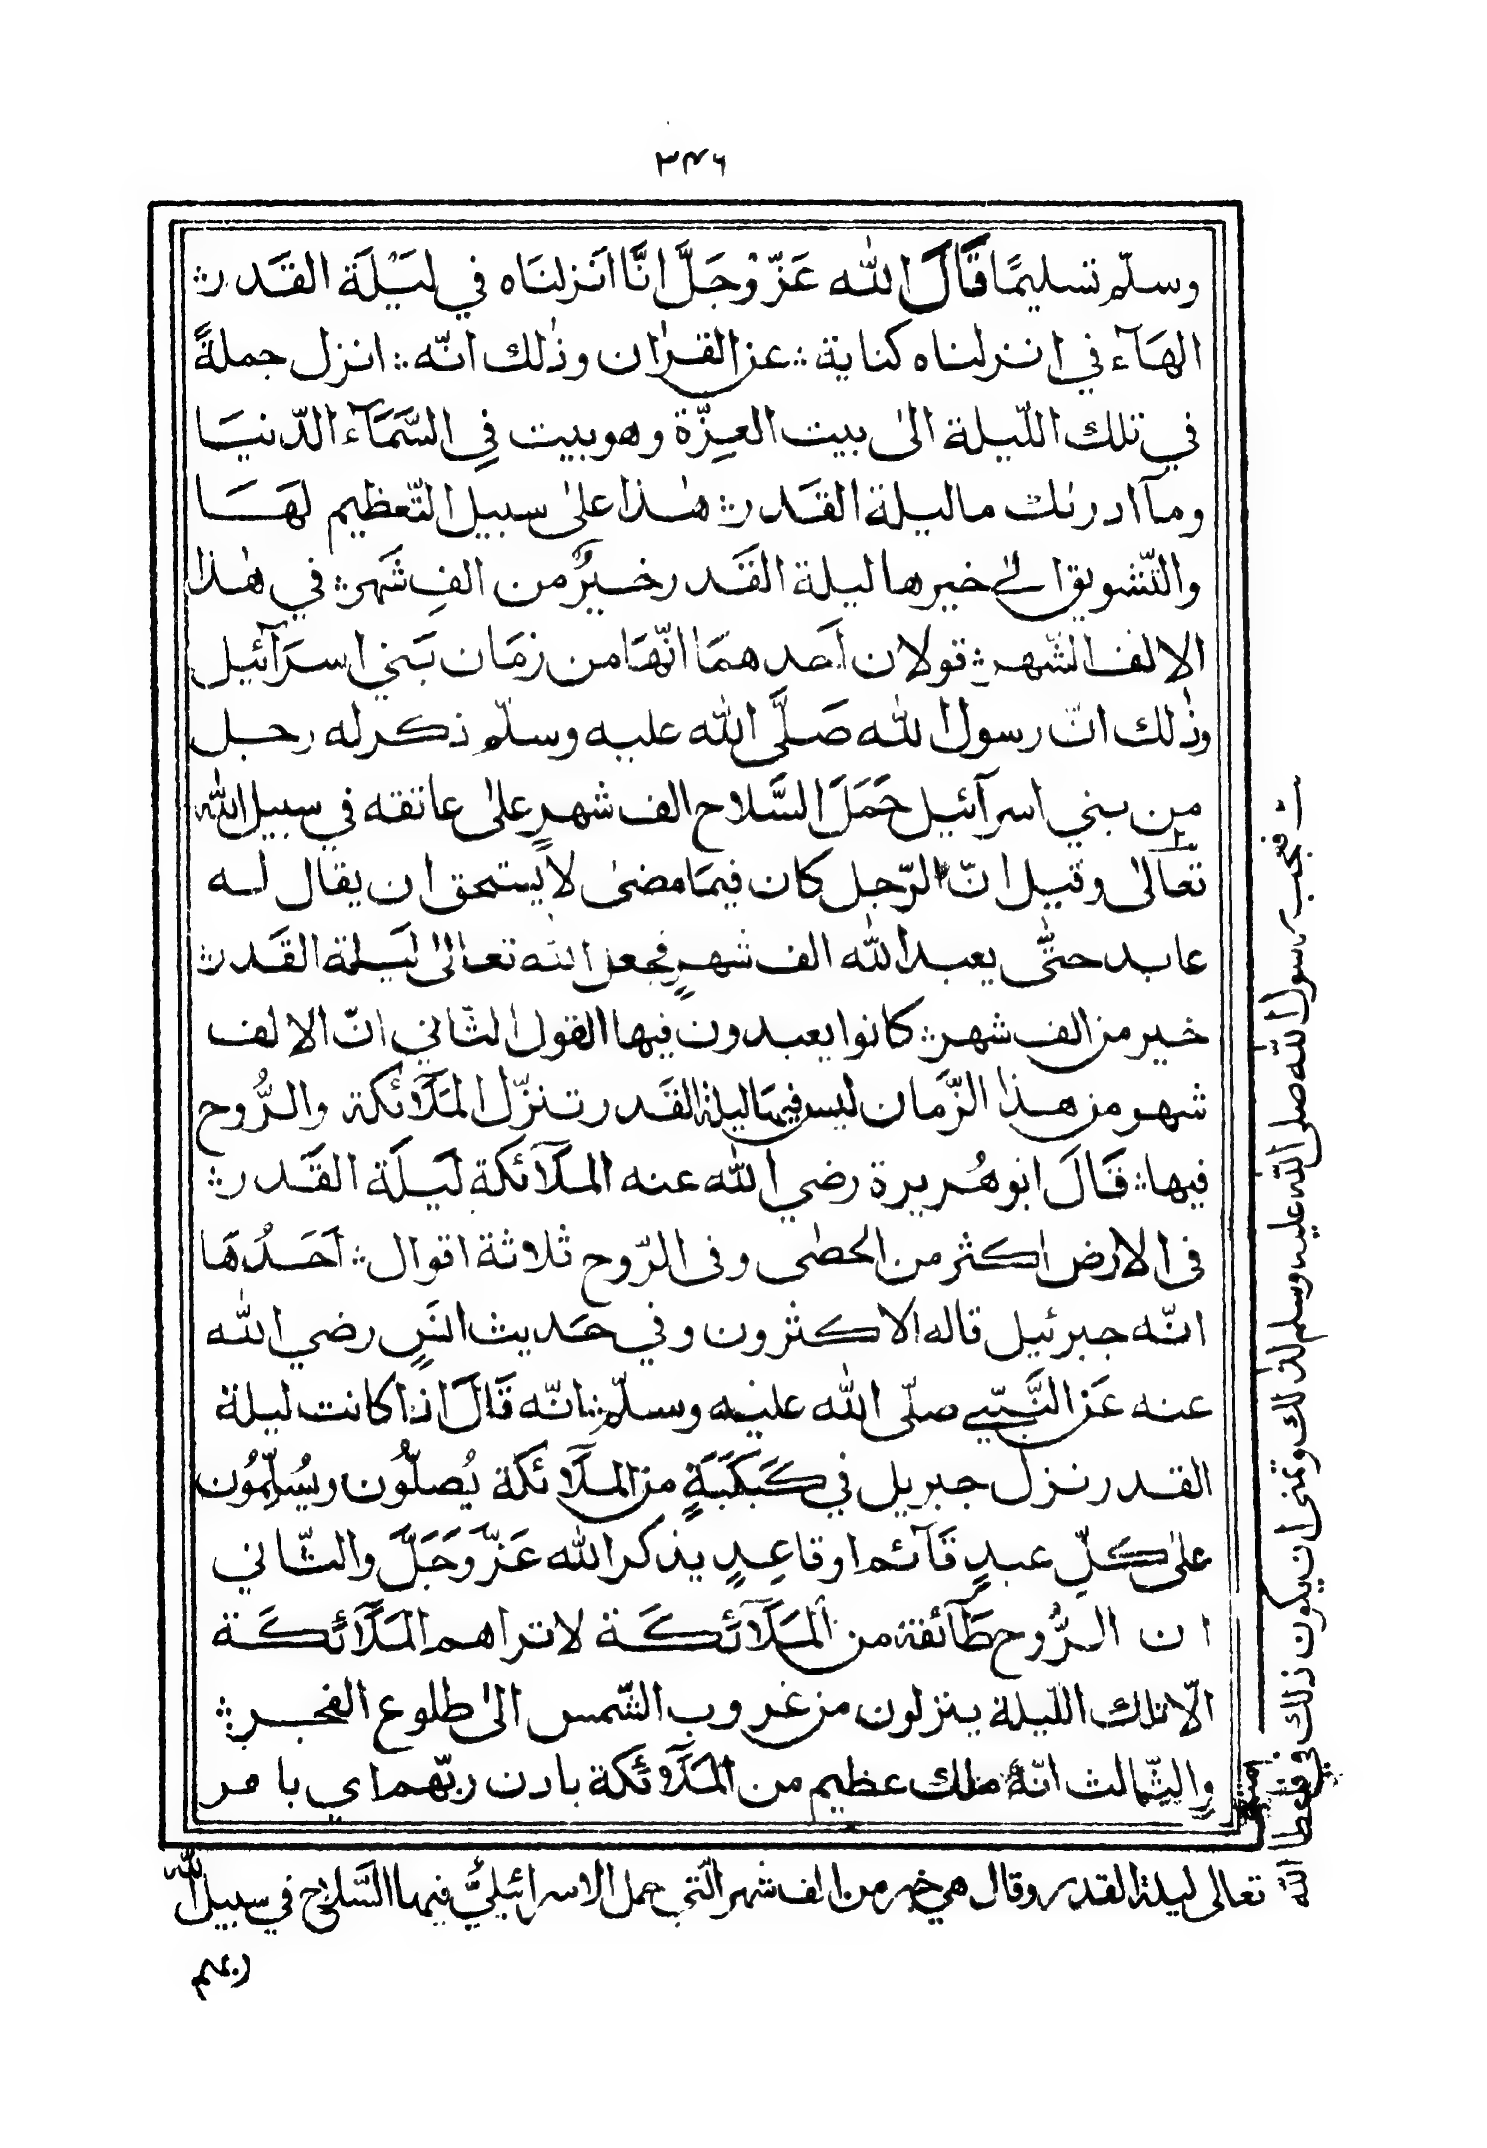 ٣٤٦
وسلّم تسليمًا قَالَ الله عَزّ وْجَلَّ انَّا انَزلنَاه في ليَْلَة القَدر ؞
الهَآء في انزلناه كناية ؞ عن القرٰان وذٰلك انّه ؞ انزل جملةً
في تلك اللّيلة الىٰ بيت العِزّة وهو بيت فِي السَّمَآء الدّنيَا
ومآ ادرىٰك ما ليلة القَدر ؞ هٰذا علىٰ سبيل التّعظيم لهَا
والتّشويق الىٰ خيرها ليلة القَدر خيرٌ من الفِ شَهر ؞ في هٰذا
الالف الشّهر ؞ قولان اَحدهمَا انّهَا من زمَان بَني اسرَآئيل
وذٰلك انّ رسول الله صَلَّى الله عليه وسلّم ذكر له رجل
من بني اسرآئيل حَمَلَ السَّلاح الف شهرٍ علىٰ عاتقه في سبيل الله
تعَالىٰ وقيل انّ الرّجل كان فيمَا مضىٰ لا يستحق ان يقال له
عابد حتّى يعبد الله الف شهرٍ فجعل الله تعالىٰ ليَلة القَدر ؞
خير من الف شهر ؞ كانوا يعبدون فيها القول الثّاني انّ الالف
شهر من هذا الزّمان ليس فيهَا ليلة القَدر تنزّل المَلَآئكة والرُّوح
فيها ؞ قَالَ ابو هُريرة رضي الله عنه الملَآئكة ليَلَة القَدر ؞
فى الارض اكثر من الحصٰى وفى الرّوح ثلاثة اقوال ؞ اَحَدُهَا
انّه جبرئيل قاله الاكثرون وفي حَديث انَسٍ رضي الله
عنه عَن النَّبيّ صلّى الله عليه وسلّم ؞ انّه قَالَ اذا كانت ليلة
القدر نزل جبريل في كَبكَبَةٍ من الملَآئكة يُصلّوُن ويُسلِّموُن
علىٰ كلّ عبدٍ قَآئم او قاعِدٍ يذكر الله عَزّ وَجَلَّ والثّاني
ان الرُّوح طَآئفة من المَلَآئكَة لا تراهم المَلَآئكَة
الّا تلك اللّيلة ينزلون من غروب الشّمس الىٰ طلوع الفجر ؞
والثّالث انّهُ ملك عظيم من المَلَآئكة باذن ربّهم اي بامر
؞ فتعجب رسول الله صلى الله عليه وسلم لذلك وتمنى ان يكون ذلك في امته فاعطا الله
تعالى ليلة القدر وقال هي خير من الف شهر الّتي حمل الاسرائيليُّ فيها السَّلاح في سبيل الله
ربهم